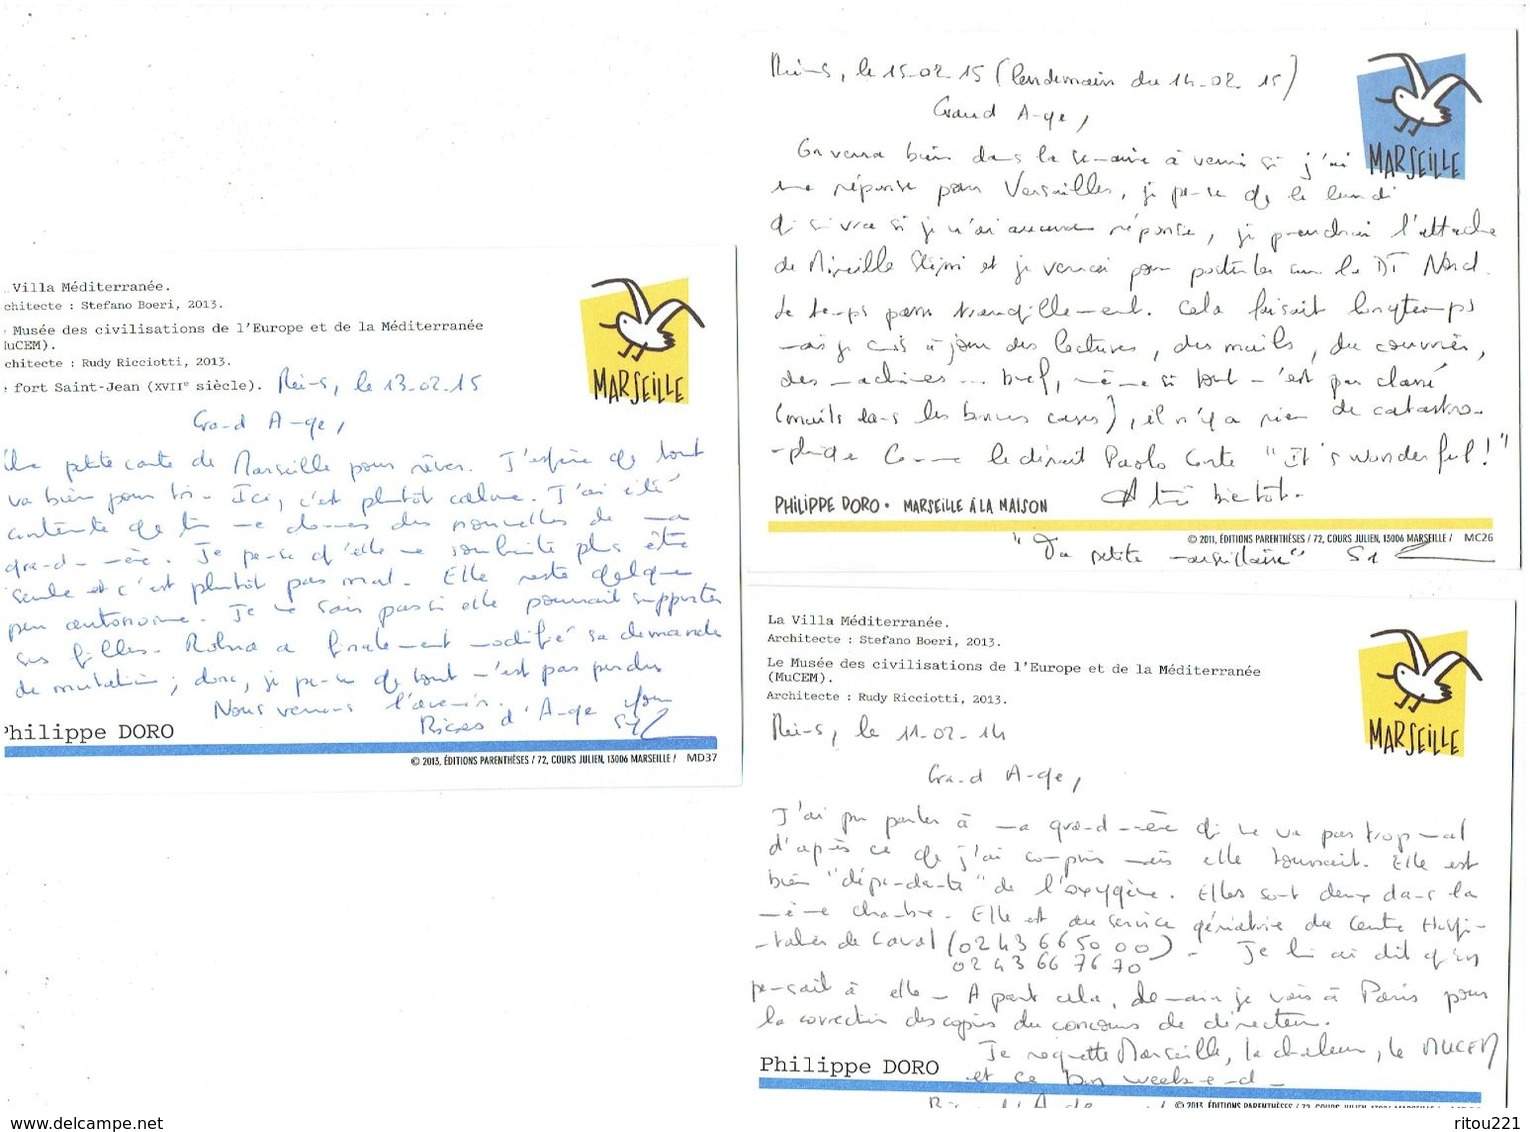 Villa Méditerranée.
chitecte : Stefano Boeri, 2013.
Musée des civilisations de l'Europe et de la Méditerranée
uCEM).
chitecte : Rudy Ricciotti, 2013.
fort Saint-Jean (XVIIe siècle). Reims, le 13-02-15
MARSEILLE
Grand Ange,
Une petite carte de Marseille pour rêver. J'espère que tout
va bien pour toi. Ici, c'est plutôt calme. J'ai été
contente que tu me donnes des nouvelles de ma
grand-mère. Je pense qu'elle ne souhaite plus être
seule et c'est plutôt pas mal. Elle reste quelque
peu autonome. Je ne sais pas si elle pourrait supporter
ses filles. a finalement modifié sa demande
de mutation ; donc, je pense que tout n'est pas perdu
Nous verrons l'avenir.
Bises d'Ange
Philippe DORO
© 2013, ÉDITIONS PARENTHÈSES / 72, COURS JULIEN, 13006 MARSEILLE / MD37
Reims, le 15-02-15 (lendemain du 14-02-15)
Grand Ange,
MARSEILLE
On verra bien dans la semaine à venir si j'ai
une réponse pour Versailles, je pense que le lundi
qui suivra si je n'ai aucune réponse, je prendrai l'attache
de Mireille et je verrai pour postuler sur la DT Nord.
Le temps passe tranquillement. Cela faisait longtemps
mais je suis à jour des lectures, des mails, du courrier,
des machines... bref, même si tout n'est pas classé
(mails dans les bonnes cases), il n'y a rien de catastro-
-phique Comme le dirait Paolo Conte "It's wonderful!"
A très bientôt.
PHILIPPE DORO • MARSEILLE À LA MAISON
© 2011, ÉDITIONS PARENTHÈSES / 72, COURS JULIEN, 13006 MARSEILLE / MC26
"Ta petite marseillaise"
La Villa Méditerranée.
Architecte : Stefano Boeri, 2013.
Le Musée des civilisations de l'Europe et de la Méditerranée
(MuCEM).
Architecte : Rudy Ricciotti, 2013.
MARSEILLE
Reims, le 11-02-14
Grand Ange,
J'ai pu parler à ma grand-mère qui ne va pas trop mal
d'après ce que j'ai compris mais elle toussait. Elle est
bien "dépendante" de l'oxygène. Elles sont deux dans la
même chambre. Elle est au service gériatrie du Centre Hospi-
-talier de Laval (02 43 66 50 00)
02 43 66 76 70
- Je lui ai dit qu'on
pensait à elle - A part cela, demain je vais à Paris pour
la correction des copies du concours de directeur.
Je regrette Marseille, la chaleur, le MUCEM
et ce bon week-end -
Philippe DORO
© 2013, ÉDITIONS PARENTHÈSES / 72, COURS JULIEN, 13006 MARSEILLE /
ritou221
www.delcampe.net